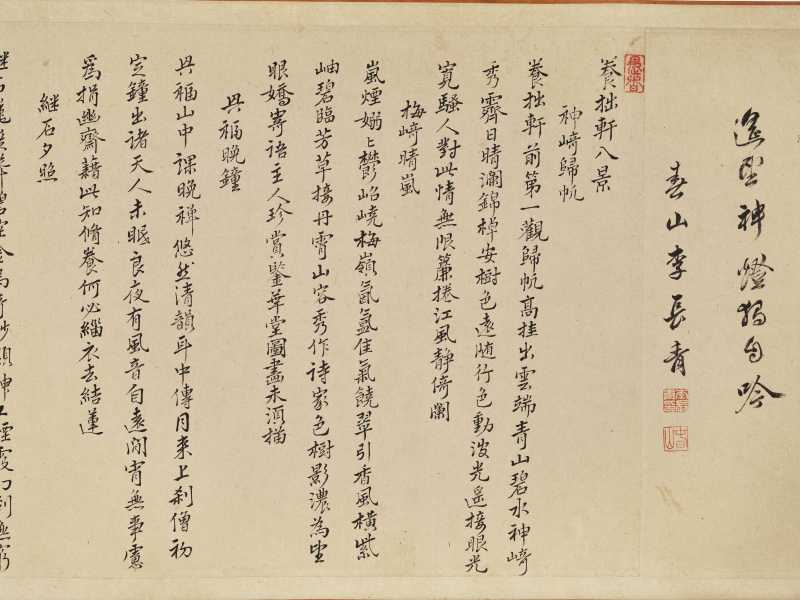 遙望神燈獨自吟
春山李長青
養拙軒八景
神﨑歸帆
養拙軒前第一觀歸帆髙挂出雲端青山碧水神﨑
秀霽日晴瀾錦棹安樹色遠随行色動波光遥接眼光
寛騷人對此情無限簾捲江風静倚闌
梅﨑晴嵐
嵐煙嫋〻鬱岧嶤梅嶺氤氳佳氣饒翠引香風橫紫
岫碧臨芳草接丹霄山容秀作詩家色樹影濃為坐
眼嬌寄語主人珍賞鑒華堂圖畫未須描
興福晚鐘
興福山中課晚禪悠然清韻耳中傳月来上刹僧初
定鐘出諸天人未眠良夜有風音自遠閑宵無事慮
爲捐幽齋藉此知脩養何必緇衣去結蓮
継石夕照